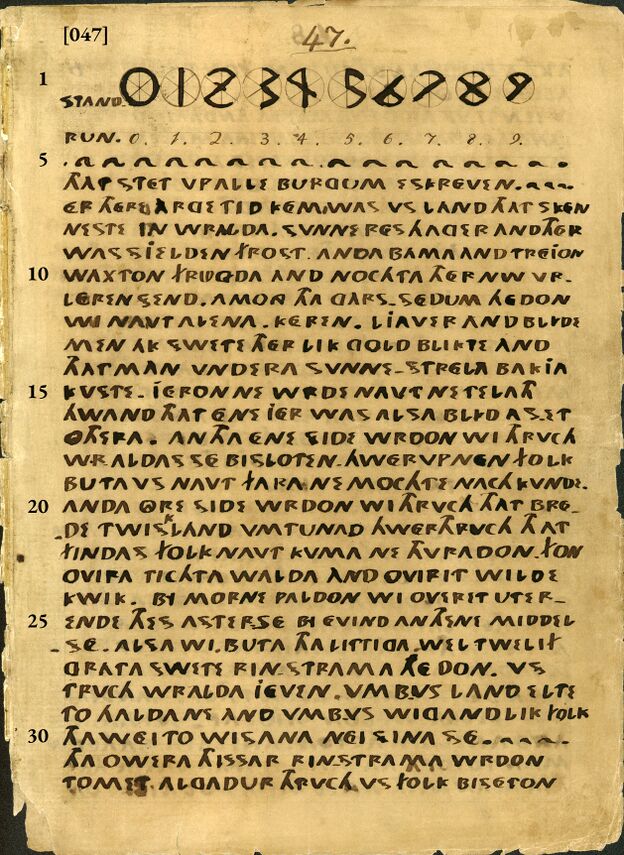 [047]
47.
1
STAND. 0 1 2 3 4 5 6 7 8 9
RUN. 0. 1. 2. 3. 4. 5. 6. 7. 8. 9.
5
THAT STET VPALLE BURGUM ESKREVEN.
ER THERE ARGE TID KEM WAS VS LAND THAT SKEN
NESTE IN WRALDA. SUNNE RES HAGER AND THER
WAS SIELDEN FROST. ANDA BAMA AND TREION
10 WAXTON FRUGDA AND NOCHTA THER NW VR_
LEREN SEND. AMONG THA GARS_SEDUM HEDON
WI NAVT ALENA. KEREN. LIAVER AND BLIDE
MEN AK SWETE THER LIK GOLD BLIKTE AND
THATMAN VNDERA SUNNE_STRELA BAKIA
15 KUSTE. IERON NE WRDE NAVT NE TELATH
HWAND THAT ENE IER WAS ALSA BLID AS ET
OTHERA. AN THA ENE SIDE WRDON WI THRUCH
WR.ALDAS SE BISLOTEN. HWER VPNEN FOLK
BUTA VS NAVT FARA NE MOCHTE NACH KUNDE.
20 ANDA ORE SIDE WRDON WI THRUCH THAT BRE_
DE TWISKLAND VMTUNAD HWERTHRUCH THAT
FINDAS FOLK NAVT KUMA NE THURADON. FON
OVIRA TICHTA WALDA AND OVIR IT WILDE
KWIK. BI MORNE PALDON WI OVER IT UTER_
25 ENDE THES ASTERSE BI EVIND AN THENE MIDDEL
_SE. ALSA WI. BUTA THA LITTIGA. WEL TWELIF
GRATA SWETE RINSTRAMA HEDON. VS
THRUCH WRALDA IEVEN. VMB.VS LAND ELTE
TO HALDANE AND VMB.VS WIGANDLIK FOLK
30 THA WEI TO WISANA NEI SINA SE.
THA OWERA THISSAR RINSTRAMA WRDON
TOMET. ALGADUR THRUCH VS FOLK BISETON